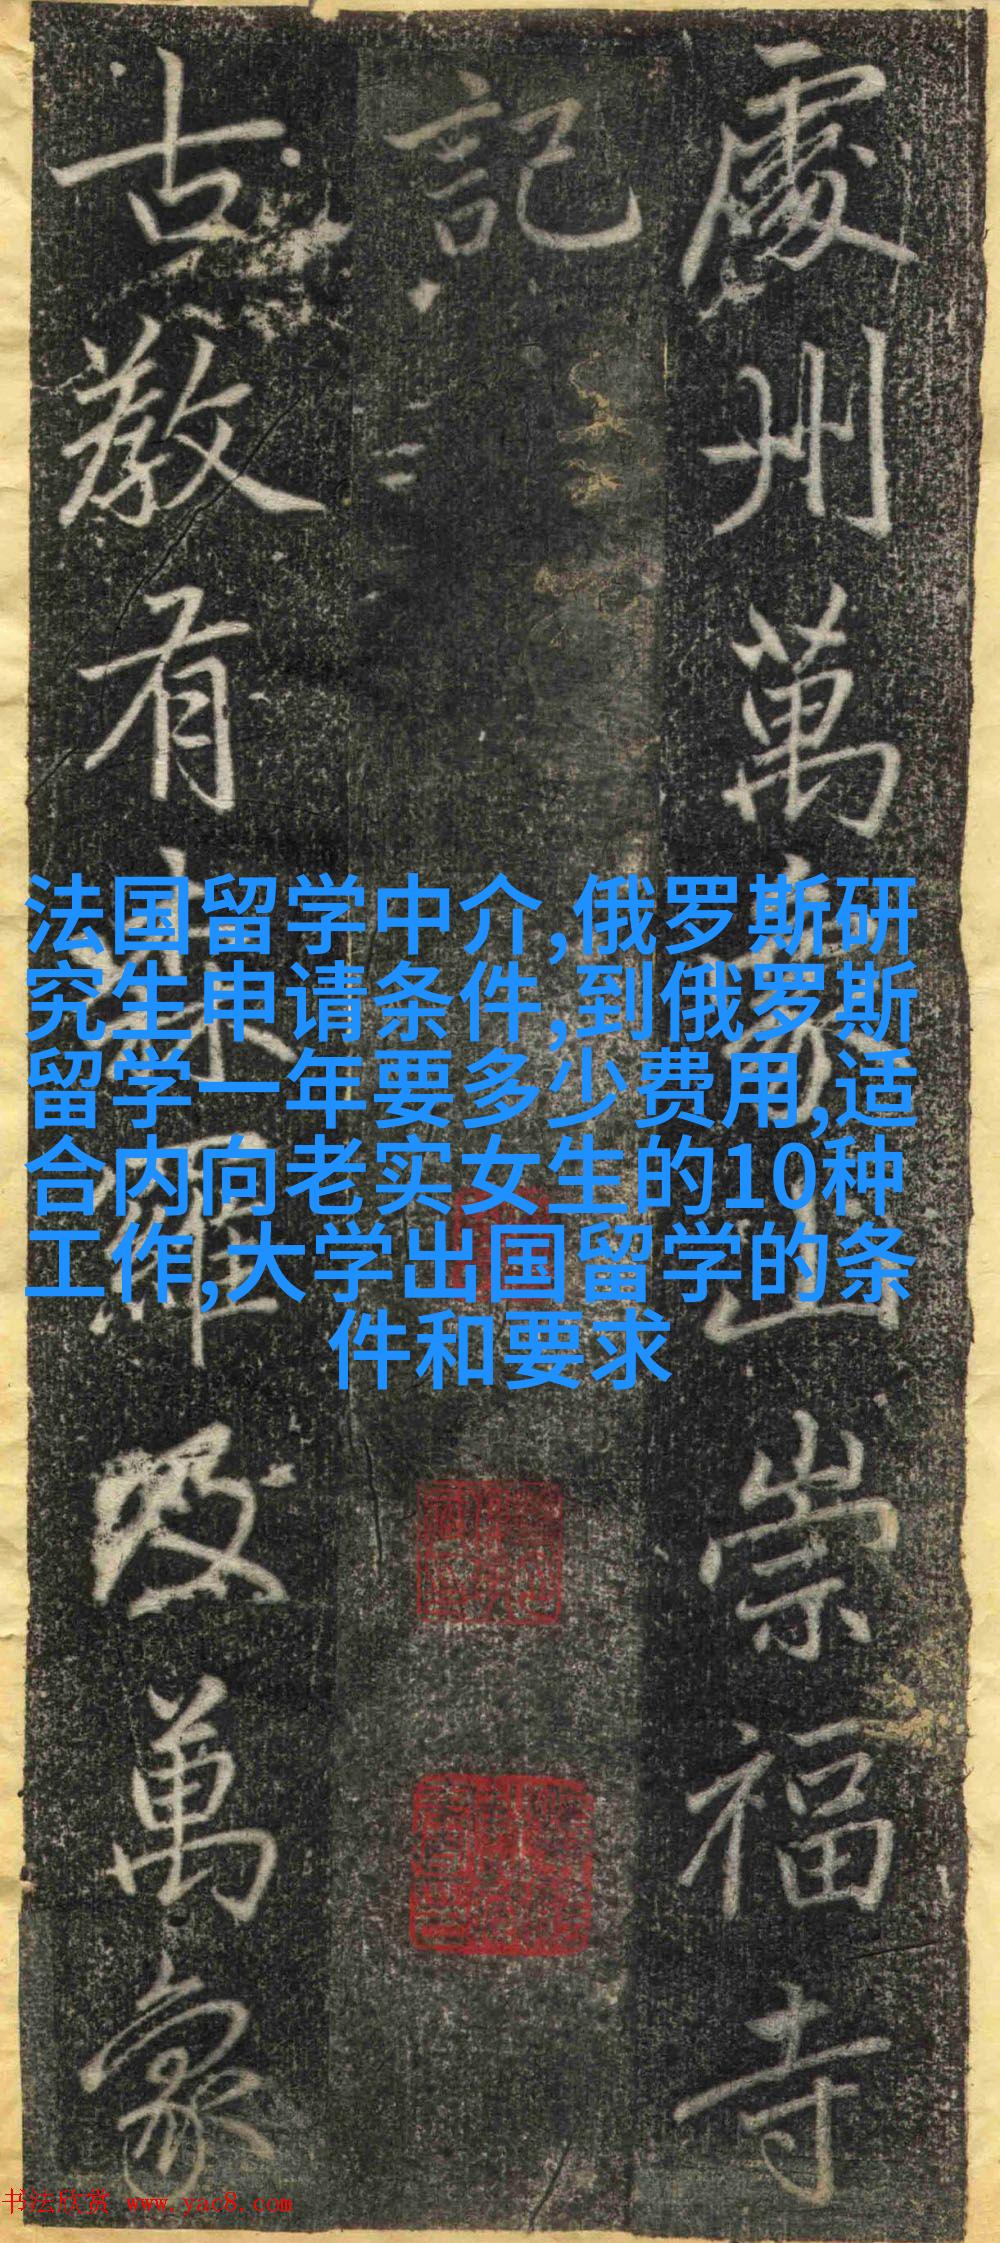 處州萬象山崇福寺
記
古教有森羅及萬象
法国留学中介,俄罗斯研
究生申请条件,到俄罗斯
留学一年要多少费用,适
合内向老实女生的10种
工作,大学出国留学的条
件和要求
书法欣赏 www.yac8.com